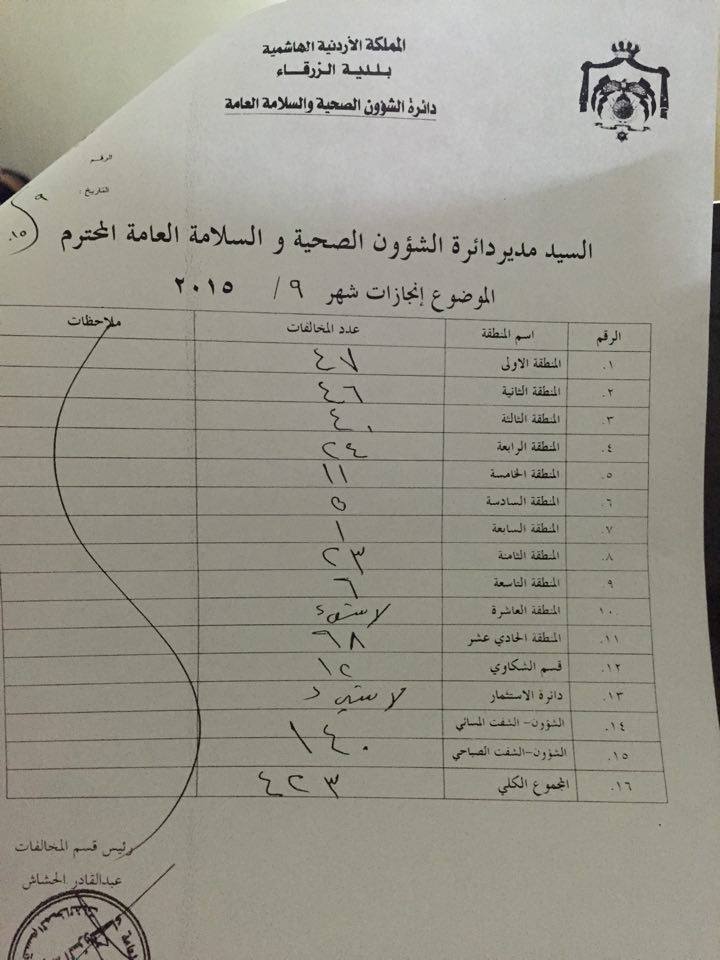 المملكة الأردنية الهاشمية
بلدية الزرقاء
دائرة الشؤون الصحية والسلامة العامة
الرقم
التاريخ :
٩
السيد مدير دائرة الشؤون الصحية و السلامة العامة المحترم
الموضوع إنجازات شهر ٩ / ٢٠١٥
الرقم اسم المنطقة عدد المخالفات ملاحظات
١. المنطقة الاولى ٤٧
٢. المنطقة الثانية ٤٦
٣. المنطقة الثالثة ٤٠
٤. المنطقة الرابعة ٢٤
٥. المنطقة الخامسة ١١
٦. المنطقة السادسة ٥
٧. المنطقة السابعة ١
٨. المنطقة الثامنة ٢٣
٩. المنطقة التاسعة ٦
١٠. المنطقة العاشرة لا شيء
١١. المنطقة الحادي عشر ٦٨
١٢. قسم الشكاوي ١٢
١٣. دائرة الاستثمار لا شيء
١٤. الشؤون- الشفت المسائي
١٥. الشؤون-الشفت الصباحي ١٤٠
١٦. المجموع الكلي ٤٢٣
رئيس قسم المخالفات
عبدالقادر الحشاش